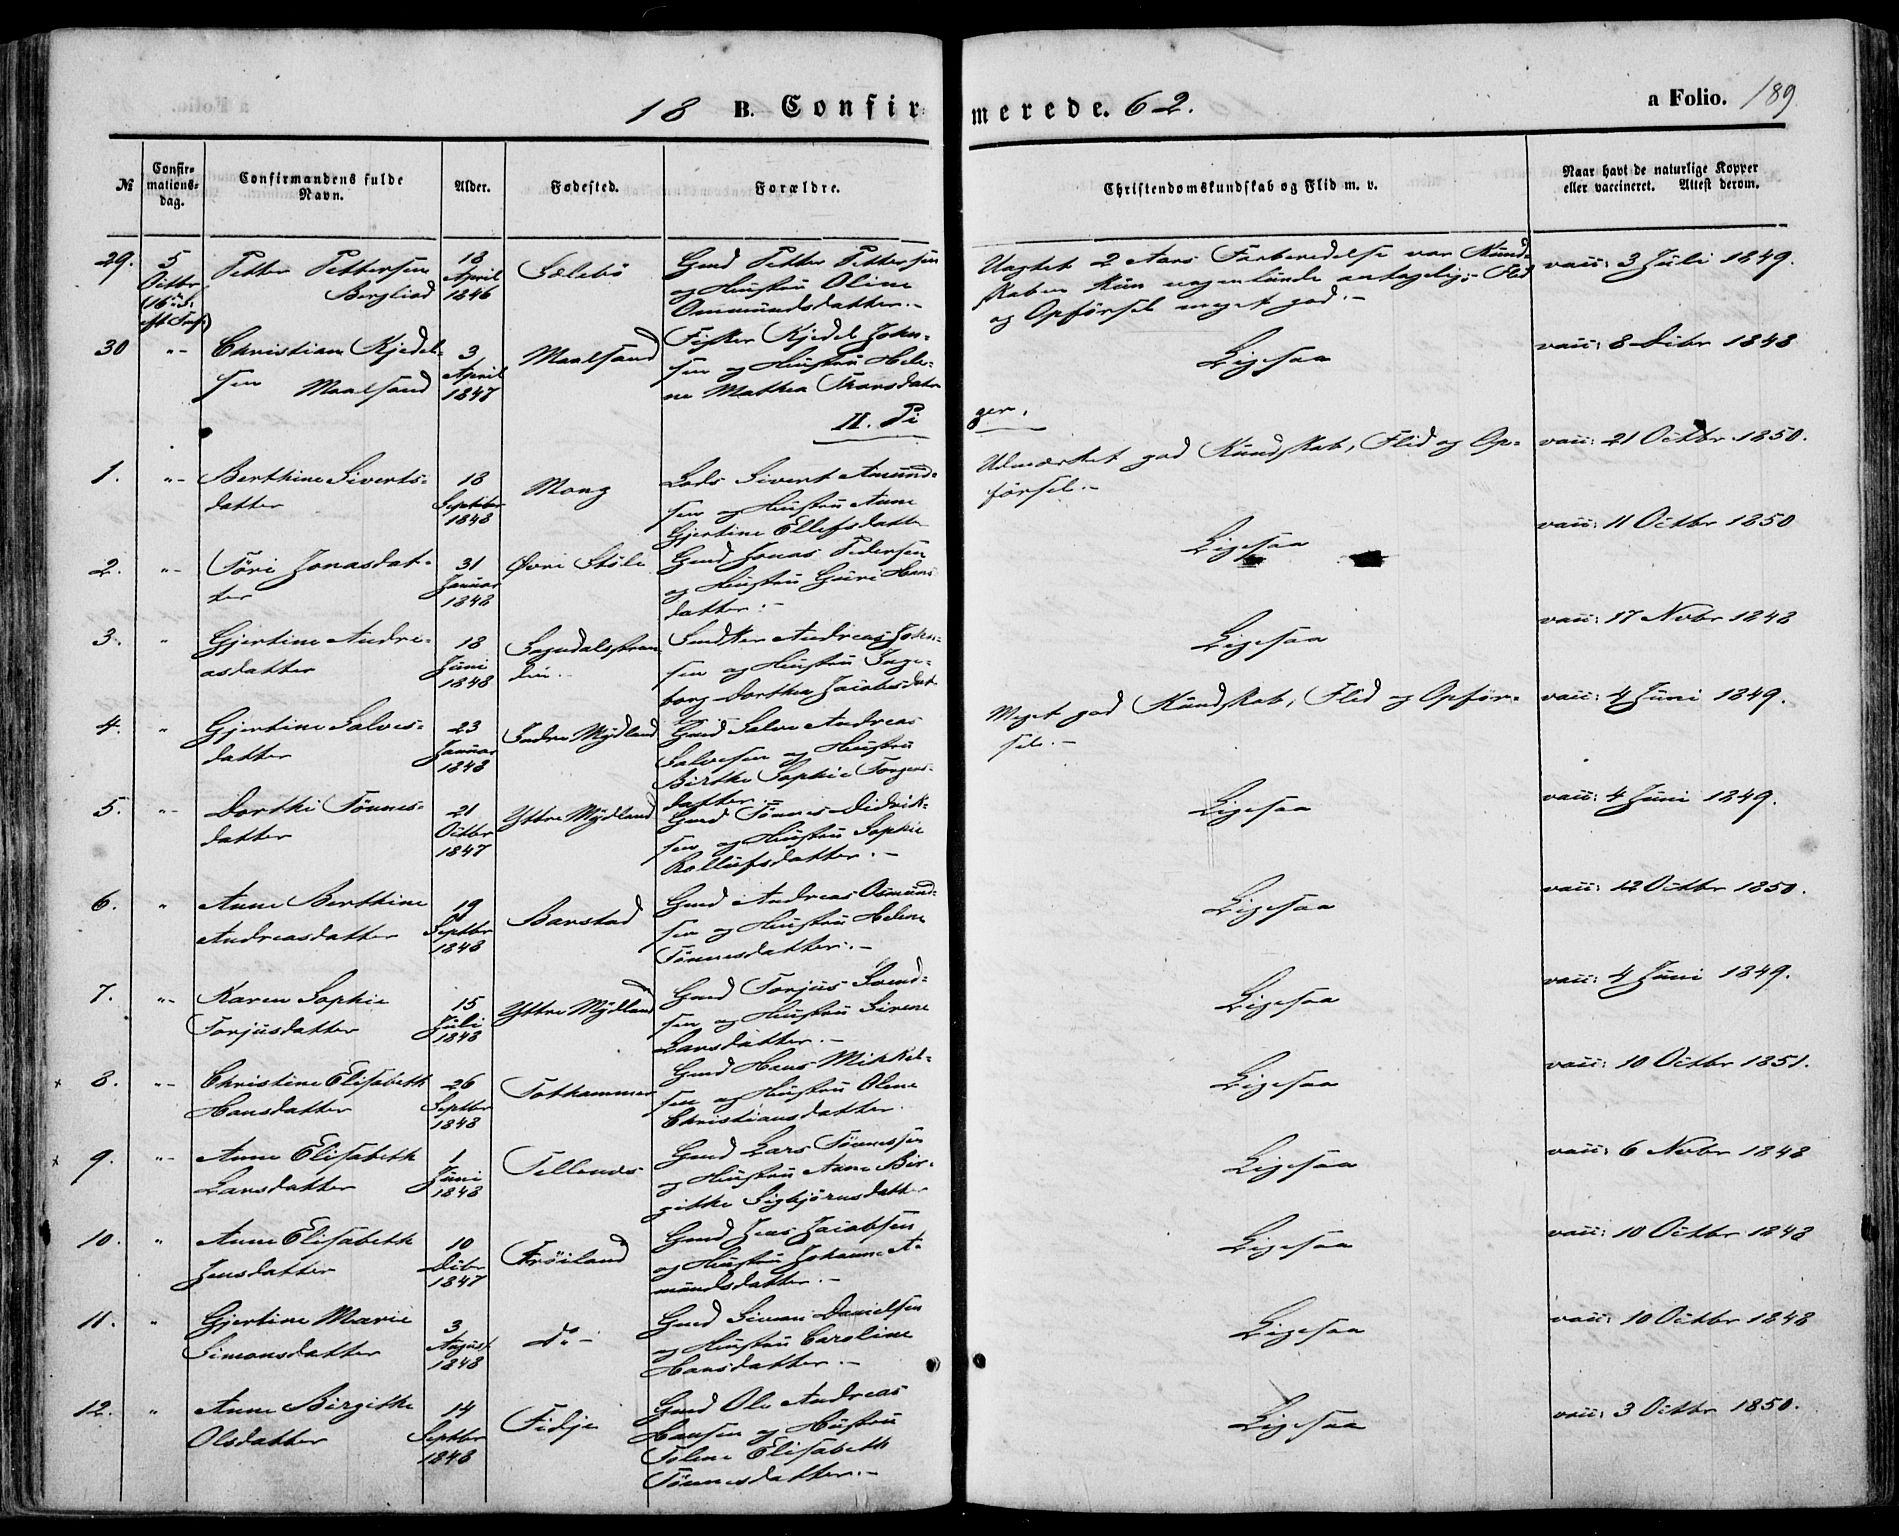 18 B. Confirmerede. 62. a Folio. 189.
№ Confirmationsdag. Confirmandens fulde Navn. Alder. Fødested. Forældre. Christendomskundskab og Flid m. v. Naar havt de naturlige Kopper eller vaccineret. Attest derom.
29. 5 Octbr Petter Pettersen Bergliad 18 April 1846 Sælebø Gmd Petter Pettersen og Hustru Oline Ommundsdatter.- Uagtet 2 Aars Forberedelse var Kundskaben kun nogenlunde antagelig; Flid og Opførsel meget god.- vacc: 3 Juli 1849.
30 "- Christian Kjedelsen Maalsand 3 April 1847 Maalsand Fisker Kjedel Johnsen og Hustru Helene Mathea Thorsdatr Ligesaa vacc: 8 Decbr 1848
II. Piger.
1. "- Berthine Sivertsdatter 18 Septbr 1848 Mong Lods Sivert Amundsen og Hustru Anne Gjertine Ellefsdatter Udmærket god Kundskab, Flid og Opførsel.- vacc: 21 Octbr 1850.
2. "- Töri Jonasdatter 31 Januar 1848 Øvre Stöle Gmd Jonas Pedersen og Hustru Guri Hansdatter.- Ligesaa vacc: 11 Octbr 1850
3. " Gjertine Andreasdatter 18 Juni 1848 Sogndalsstranden. Snedker Andreas Johnsen og Hustru Ingeborg Dorthea Jacobsdat Ligesaa vacc: 17 Novbr 1848
4. " Gjertine Salvesdatter 23 Januar 1848 Indre Mydland Gmd Salve Andreas Salvesen og Hustru Birthe Sophie Torgersdatter.- Meget god Kundskab, Flid og Opførsel.- vacc: 4 Juni 1849.
5. "- Dorthe Tönnesdatter 21 Octbr 1847 Yttre Mydland Gmd Tönnes Didriksen og Hustru Sophie Rollufsdatter.- Ligesaa vacc: 4 Juni 1849.
6. " Anne Berthine Andreasdatter 19 Septbr 1848 Barstad Gmd Andreas Osmundsen og Hustru Helene Tönnesdatter.- Ligesaa vacc: 12 Octbr 1850.
7. "- Karen Sophie Torjusdatter 15 Juli 1848 Yttre Mydland Gmd Torjus Svendsen og Hustru Sirene Larsdatter.- Ligesaa vacc: 4 Juni 1849.
x 8. "- Christine Elisabeth Hansdatter 26 Septbr 1848 Tothammer Gmd Hans Mikkelsen og Hustru Olene Christiansdatter. Ligesaa vacc: 10 Octbr 1851.
x 9. "- Anne Elisabeth Larsdatter 1 Juni 1848 Tellenes Gmd Lars Tönnessen og Hustru Anne Birgitte Sigbjörnsdatter Ligesaa vacc: 6 Novbr 1848
10. " Anne Elisabeth Jensdatter 10 Decbr 1847 Fröiland Gmd Jens Jacobsen og Hustru Johanne Amundsdatter.- Ligesaa vacc: 10 Octbr 1848
11. " Gjertine Marie Simonsdatter 3 August 1848 Do - Gmd Simon Danielsen og Hustru Caroline Hansdatter.- Ligesaa vacc: 10 Octbr 1848
12. " Anne Birgithe Olsdatter 14 Septbr 1848 Fidje Gmd Ole Andreas Hansen og Hustru Tolene Elisabeth Tönnesdatter.- Ligesaa vacc: 3 Octbr 1850.